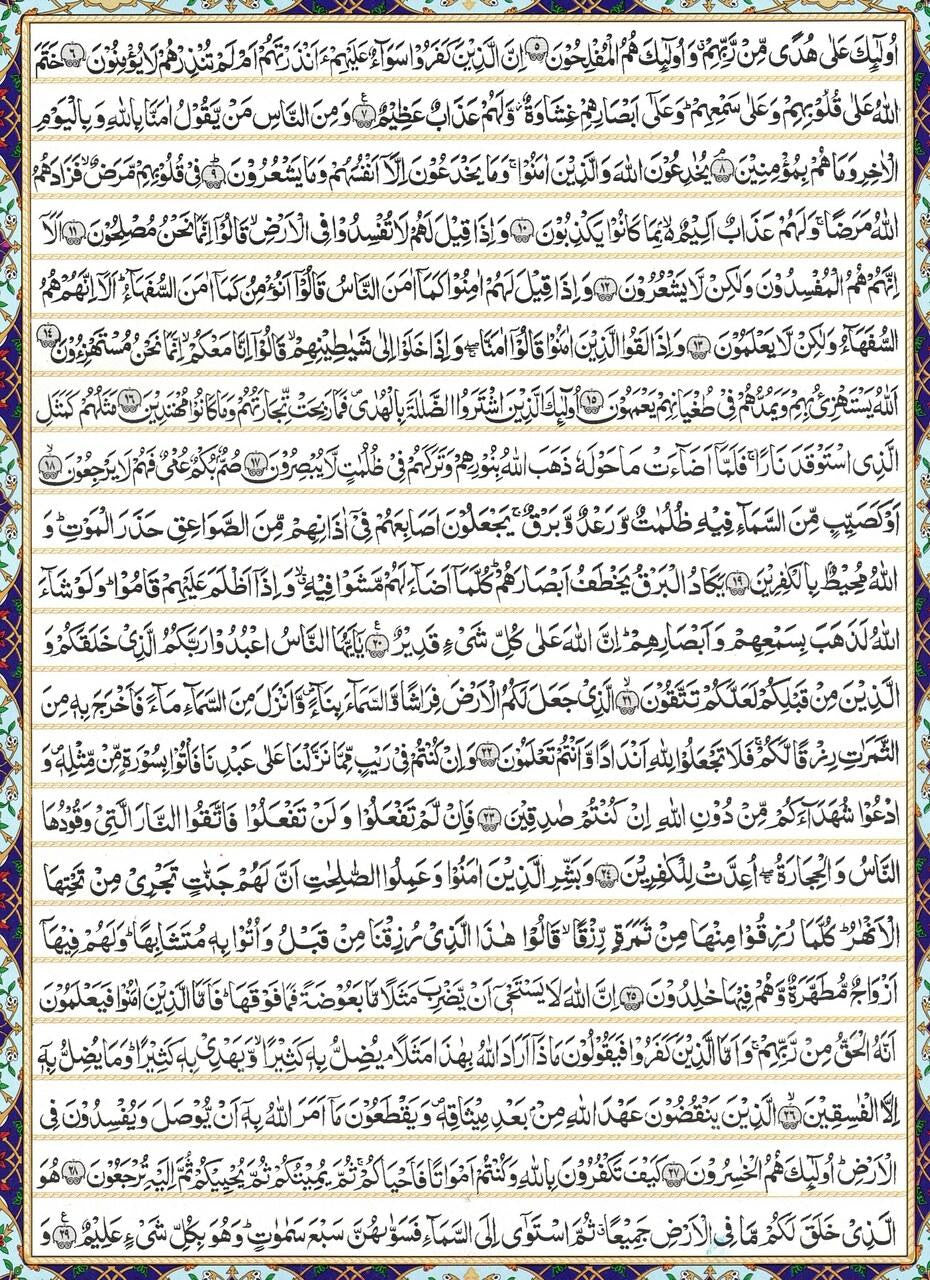 اُولٰٓئِكَ عَلٰى هُدًى مِّنْ رَّبِّهِمْ ۗ وَاُولٰٓئِكَ هُمُ الْمُفْلِحُوْنَ ۵ اِنَّ الَّذِيْنَ كَفَرُوْا سَوَآءٌ عَلَيْهِمْ ءَاَنْذَرْتَهُمْ اَمْ لَمْ تُنْذِرْهُمْ لَا يُؤْمِنُوْنَ ۶ خَتَمَ
اللّٰهُ عَلٰى قُلُوْبِهِمْ وَعَلٰى سَمْعِهِمْ ؕ وَعَلٰٓى اَبْصَارِهِمْ غِشَاوَةٌ ۫ وَّلَهُمْ عَذَابٌ عَظِيْمٌ ۷ وَمِنَ النَّاسِ مَنْ يَّقُوْلُ اٰمَنَّا بِاللّٰهِ وَبِالْيَوْمِ
الْاٰخِرِ وَمَا هُمْ بِمُؤْمِنِيْنَ ۘ ۸ يُخٰدِعُوْنَ اللّٰهَ وَالَّذِيْنَ اٰمَنُوْا ۚ وَمَا يَخْدَعُوْنَ اِلَّآ اَنْفُسَهُمْ وَمَا يَشْعُرُوْنَ ؕ ۹ فِيْ قُلُوْبِهِمْ مَّرَضٌ ۙ فَزَادَهُمُ
اللّٰهُ مَرَضًا ۚ وَلَهُمْ عَذَابٌ اَلِيْمٌ ۢ ۙ بِمَا كَانُوْا يَكْذِبُوْنَ ۱۰ وَاِذَا قِيْلَ لَهُمْ لَا تُفْسِدُوْا فِى الْاَرْضِ ۙ قَالُوْٓا اِنَّمَا نَحْنُ مُصْلِحُوْنَ ۱۱ اَلَآ
اِنَّهُمْ هُمُ الْمُفْسِدُوْنَ وَلٰكِنْ لَّا يَشْعُرُوْنَ ۱۲ وَاِذَا قِيْلَ لَهُمْ اٰمِنُوْا كَمَآ اٰمَنَ النَّاسُ قَالُوْٓا اَنُؤْمِنُ كَمَآ اٰمَنَ السُّفَهَآءُ ؕ اَلَآ اِنَّهُمْ هُمُ
السُّفَهَآءُ وَلٰكِنْ لَّا يَعْلَمُوْنَ ۱۳ وَاِذَا لَقُوا الَّذِيْنَ اٰمَنُوْا قَالُوْٓا اٰمَنَّا ۖۚ وَاِذَا خَلَوْا اِلٰى شَيٰطِيْنِهِمْ ۙ قَالُوْٓا اِنَّا مَعَكُمْ ۙ اِنَّمَا نَحْنُ مُسْتَهْزِءُوْنَ ۱۴
اَللّٰهُ يَسْتَهْزِئُ بِهِمْ وَيَمُدُّهُمْ فِيْ طُغْيَانِهِمْ يَعْمَهُوْنَ ۱۵ اُولٰٓئِكَ الَّذِيْنَ اشْتَرَوُا الضَّلٰلَةَ بِالْهُدٰى ۪ فَمَا رَبِحَتْ تِّجَارَتُهُمْ وَمَا كَانُوْا مُهْتَدِيْنَ ۱۶ مَثَلُهُمْ كَمَثَلِ
الَّذِى اسْتَوْقَدَ نَارًا ۚ فَلَمَّآ اَضَآءَتْ مَا حَوْلَهٗ ذَهَبَ اللّٰهُ بِنُوْرِهِمْ وَتَرَكَهُمْ فِيْ ظُلُمٰتٍ لَّا يُبْصِرُوْنَ ۱۷ صُمٌّۢ بُكْمٌ عُمْيٌ فَهُمْ لَا يَرْجِعُوْنَ ۙ ۱۸
اَوْ كَصَيِّبٍ مِّنَ السَّمَآءِ فِيْهِ ظُلُمٰتٌ وَّرَعْدٌ وَّبَرْقٌ ۚ يَجْعَلُوْنَ اَصَابِعَهُمْ فِيْٓ اٰذَانِهِمْ مِّنَ الصَّوَاعِقِ حَذَرَ الْمَوْتِ ؕ وَ
اللّٰهُ مُحِيْطٌۢ بِالْكٰفِرِيْنَ ۱۹ يَكَادُ الْبَرْقُ يَخْطَفُ اَبْصَارَهُمْ ؕ كُلَّمَآ اَضَآءَ لَهُمْ مَّشَوْا فِيْهِ ۙ وَاِذَآ اَظْلَمَ عَلَيْهِمْ قَامُوْا ؕ وَلَوْ شَآءَ
اللّٰهُ لَذَهَبَ بِسَمْعِهِمْ وَاَبْصَارِهِمْ ؕ اِنَّ اللّٰهَ عَلٰى كُلِّ شَيْءٍ قَدِيْرٌ ۲۰ يٰٓاَيُّهَا النَّاسُ اعْبُدُوْا رَبَّكُمُ الَّذِيْ خَلَقَكُمْ وَ
الَّذِيْنَ مِنْ قَبْلِكُمْ لَعَلَّكُمْ تَتَّقُوْنَ ۙ ۲۱ الَّذِيْ جَعَلَ لَكُمُ الْاَرْضَ فِرَاشًا وَّالسَّمَآءَ بِنَآءً ۪ وَّاَنْزَلَ مِنَ السَّمَآءِ مَآءً فَاَخْرَجَ بِهٖ مِنَ
الثَّمَرٰتِ رِزْقًا لَّكُمْ ۚ فَلَا تَجْعَلُوْا لِلّٰهِ اَنْدَادًا وَّاَنْتُمْ تَعْلَمُوْنَ ۲۲ وَاِنْ كُنْتُمْ فِيْ رَيْبٍ مِّمَّا نَزَّلْنَا عَلٰى عَبْدِنَا فَاْتُوْا بِسُوْرَةٍ مِّنْ مِّثْلِهٖ ۪ وَ
ادْعُوْا شُهَدَآءَكُمْ مِّنْ دُوْنِ اللّٰهِ اِنْ كُنْتُمْ صٰدِقِيْنَ ۲۳ فَاِنْ لَّمْ تَفْعَلُوْا وَلَنْ تَفْعَلُوْا فَاتَّقُوا النَّارَ الَّتِيْ وَقُوْدُهَا
النَّاسُ وَالْحِجَارَةُ ۖۚ اُعِدَّتْ لِلْكٰفِرِيْنَ ۲۴ وَبَشِّرِ الَّذِيْنَ اٰمَنُوْا وَعَمِلُوا الصّٰلِحٰتِ اَنَّ لَهُمْ جَنّٰتٍ تَجْرِيْ مِنْ تَحْتِهَا
الْاَنْهٰرُ ؕ كُلَّمَا رُزِقُوْا مِنْهَا مِنْ ثَمَرَةٍ رِّزْقًا ۙ قَالُوْا هٰذَا الَّذِيْ رُزِقْنَا مِنْ قَبْلُ ۙ وَاُتُوْا بِهٖ مُتَشَابِهًا ؕ وَلَهُمْ فِيْهَآ
اَزْوَاجٌ مُّطَهَّرَةٌ ۙ وَّهُمْ فِيْهَا خٰلِدُوْنَ ۲۵ اِنَّ اللّٰهَ لَا يَسْتَحْيٖٓ اَنْ يَّضْرِبَ مَثَلًا مَّا بَعُوْضَةً فَمَا فَوْقَهَا ؕ فَاَمَّا الَّذِيْنَ اٰمَنُوْا فَيَعْلَمُوْنَ
اَنَّهُ الْحَقُّ مِنْ رَّبِّهِمْ ۚ وَاَمَّا الَّذِيْنَ كَفَرُوْا فَيَقُوْلُوْنَ مَاذَآ اَرَادَ اللّٰهُ بِهٰذَا مَثَلًا ۘ يُضِلُّ بِهٖ كَثِيْرًا ۙ وَّيَهْدِيْ بِهٖ كَثِيْرًا ؕ وَمَا يُضِلُّ بِهٖٓ
اِلَّا الْفٰسِقِيْنَ ۙ ۲۶ الَّذِيْنَ يَنْقُضُوْنَ عَهْدَ اللّٰهِ مِنْۢ بَعْدِ مِيْثَاقِهٖ ۪ وَيَقْطَعُوْنَ مَآ اَمَرَ اللّٰهُ بِهٖٓ اَنْ يُّوْصَلَ وَيُفْسِدُوْنَ فِى
الْاَرْضِ ؕ اُولٰٓئِكَ هُمُ الْخٰسِرُوْنَ ۲۷ كَيْفَ تَكْفُرُوْنَ بِاللّٰهِ وَكُنْتُمْ اَمْوَاتًا فَاَحْيَاكُمْ ۚ ثُمَّ يُمِيْتُكُمْ ثُمَّ يُحْيِيْكُمْ ثُمَّ اِلَيْهِ تُرْجَعُوْنَ ۲۸ هُوَ
الَّذِيْ خَلَقَ لَكُمْ مَّا فِى الْاَرْضِ جَمِيْعًا ۗ ثُمَّ اسْتَوٰٓى اِلَى السَّمَآءِ فَسَوّٰىهُنَّ سَبْعَ سَمٰوٰتٍ ؕ وَهُوَ بِكُلِّ شَيْءٍ عَلِيْمٌ ۲۹ وَ